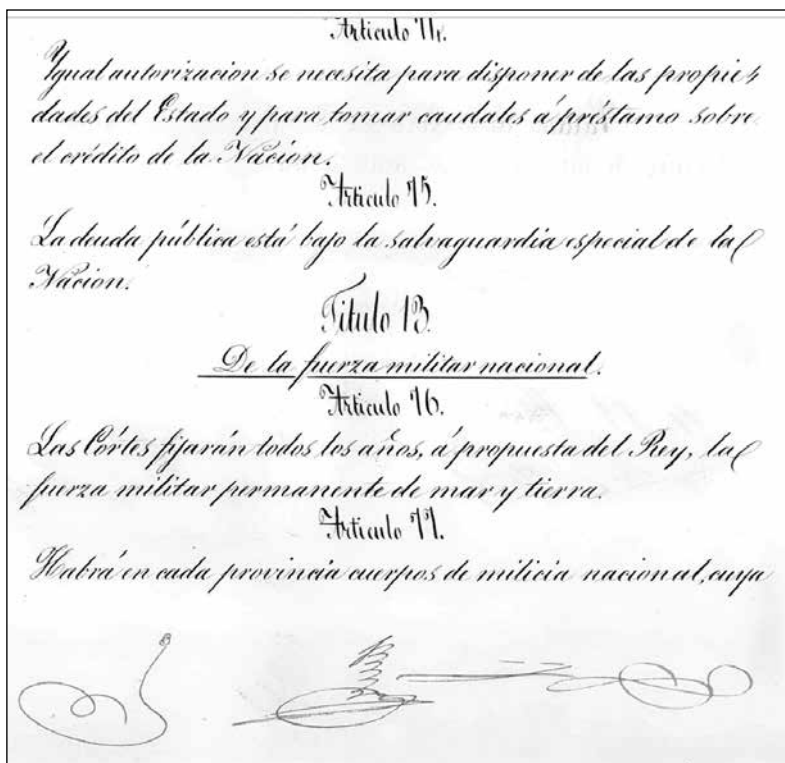 Artículo 74.
Ygual autorizacion se necesita para disponer de las propie-
dades del Estado y para tomar caudales á préstamo sobre
el crédito de la Nacion.
Artículo 75.
La deuda pública está bajo la salvaguardia especial de la
Nacion.
Título 13.
De la fuerza militar nacional.
Artículo 76.
Las Córtes fijarán todos los años, á propuesta del Rey, la
fuerza militar permanente de mar y tierra.
Artículo 77.
Habrá en cada provincia cuerpos de milicia nacional, cuya